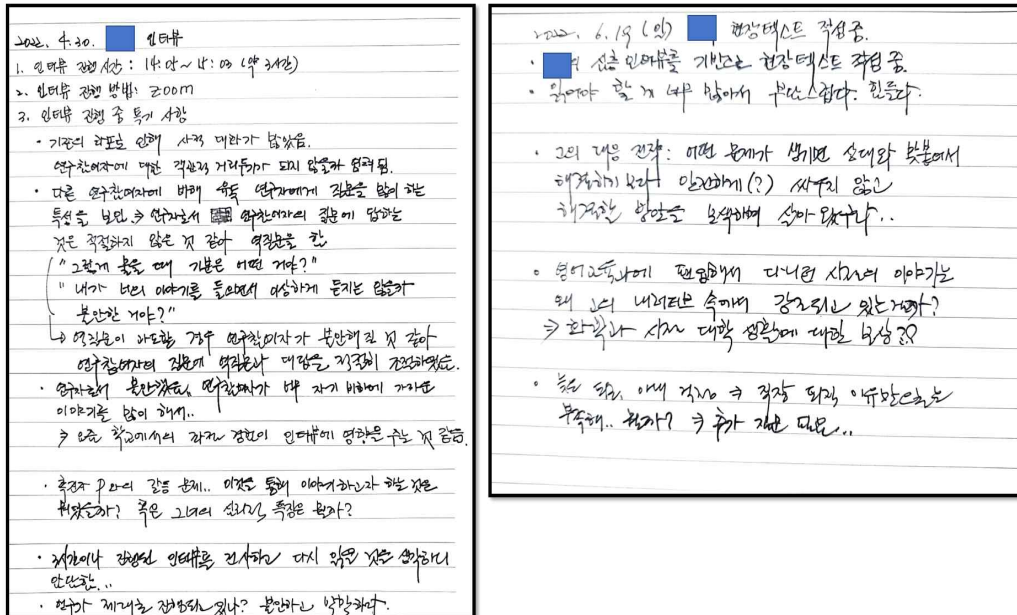 2022. 4.30. 인터뷰
1. 인터뷰 진행 시간 : 14:05 ~ 17:03 (약 3시간)
2. 인터뷰 진행 방법: zoom
3. 인터뷰 진행 중 특기 사항
· 기존의 라포로 인해 사적 대화가 많았음.
연구참여자에 대한 객관적 거리두기가 되지 않을까 염려 됨.
· 다른 연구참여자에 비해 유독 연구자에게 질문을 많이 하는
특성을 보임. → 연구자로서 연구참여자의 질문에 답하는
것은 적절하지 않은 것 같아 역질문을 함
"그렇게 물을 때 기분은 어떤 거야?"
"내가 너의 이야기를 들으면서 이상하게 듣지는 않을까
불안한 거야?"
↳ 역질문이 과도할 경우 연구참여자가 불안해질 것 같아
연구참여자의 질문에 역질문과 대답을 적절히 조절하였음.
· 연구자로서 불안했음. 연구참여자가 매우 자기 비하에 가까운
이야기를 많이 해서..
⇒ 요즘 학교에서의 경험이 인터뷰에 영향을 주는 것 같음.
· 촉진자 P와의 갈등 문제.. 이것을 통해 이야기하고자 하는 것은
뭐였을까? 혹은 그녀의 심리적 특징은 뭘까?
· 3시간이나 진행된 인터뷰를 전사하고 다시 읽을 것을 생각하니
깜깜함...
· 연구가 제대로 진행되고 있나? 불안하고 막막하다.
2022. 6.19 (일) 현장텍스트 작성 중.
· 심층 인터뷰를 기반으로 현장텍스트 작성 중.
· 읽어야 할 게 너무 많아서 부담스럽다. 힘들다.
· 그의 대응 전략: 어떤 문제가 생기면 상대와 맞붙어서
해결하기 보다 안전하게(?) 싸우지 않고
해결할 방안을 모색하며 살아 왔구나..
· 영어교육과에 편입해서 다니던 시절의 이야기는
왜 그의 내러티브 속에서 강조되고 있는걸까?
⇒ 화학과 시절 대학 생활에 대한 보상??
· 늦은 퇴근, 아내 걱정 ⇒ 직장 퇴직 이유만으로는
부족해.. 뭘까? ⇒ 추가 질문 필요..